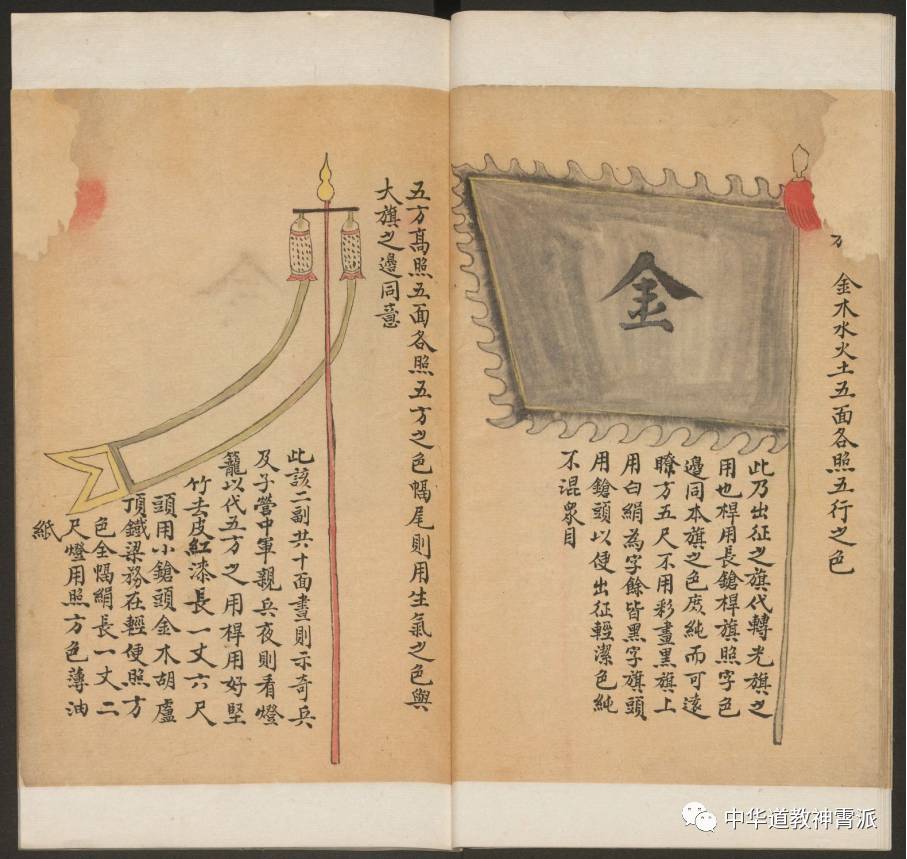 金木水火土五面各照五行之色
金
此乃出征之旗代轉光旗之
用也桿用長鎗桿旗照字色
邊同本旗之色庶純而可遠
瞭方五尺不用彩畫黑旗上
用白絹為字餘皆黑字旗頭
用鎗頭以便出征輕潔色純
不混眾目
五方高照五面各照五方之色幅尾則用生氣之色與
大旗之邊同意
此該二副共十面晝則示奇兵
及子營中軍親兵夜則看燈
籠以代五方之用桿用好堅
竹去皮紅漆長一丈六尺
頭用小鎗頭金木胡盧
頂鐵梁務在輕便照方
色全幅絹長一丈二
尺燈用照方色薄油
紙
中华道教神霄派